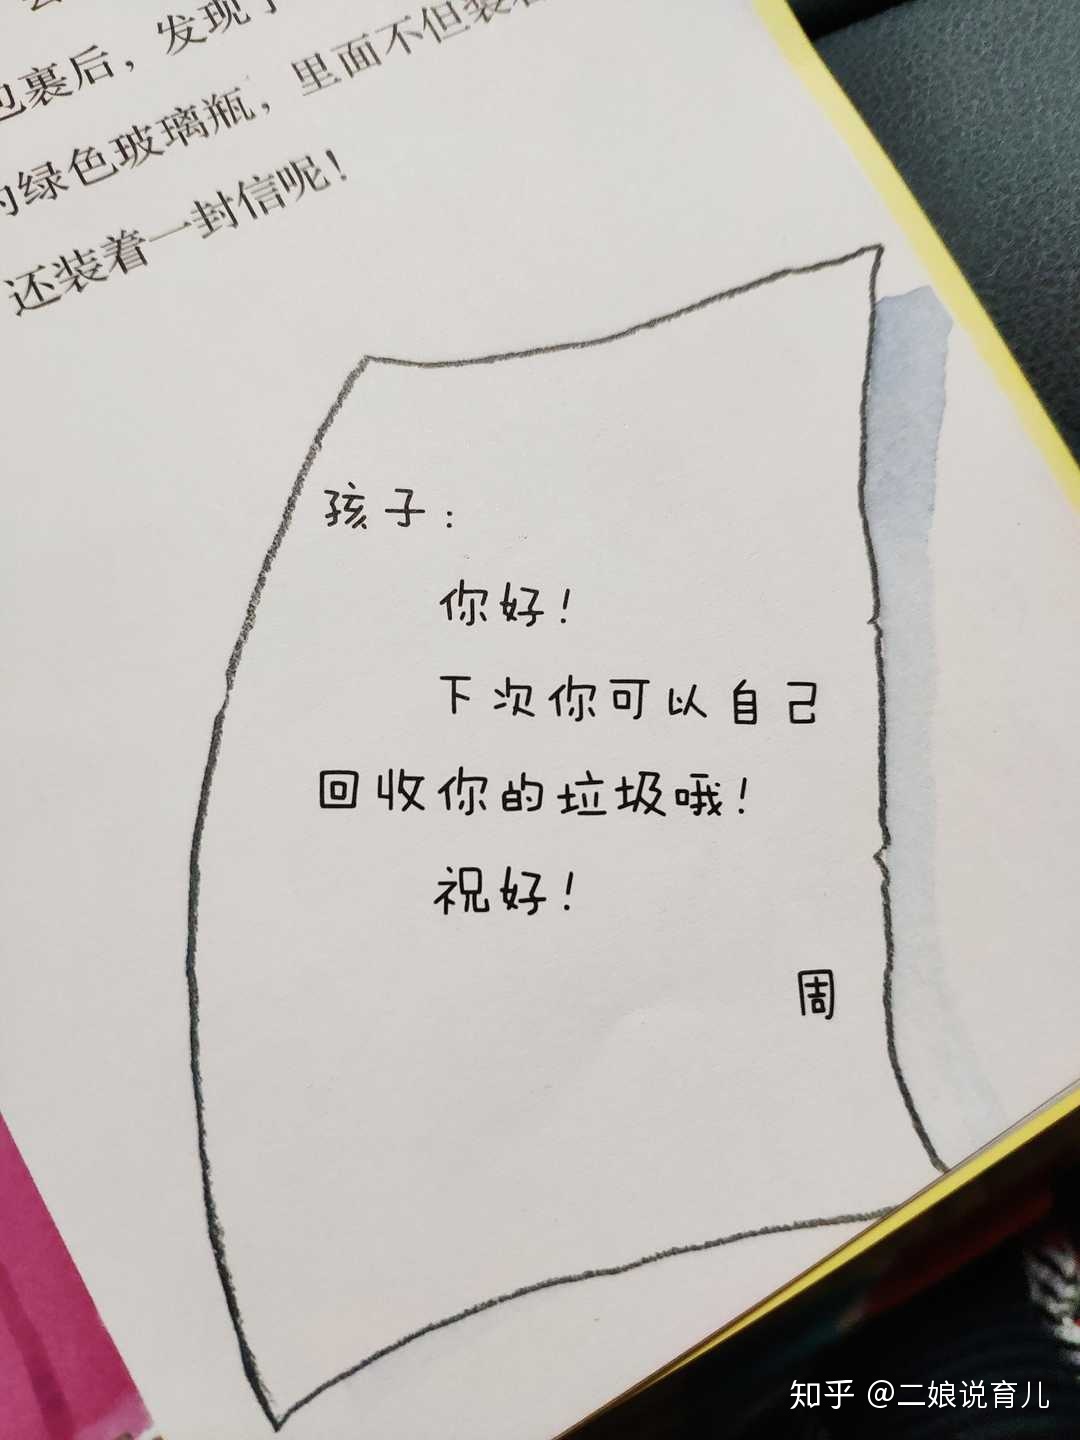 包裹后，发现了
的绿色玻璃瓶，里面不但装着
还装着一封信呢！
孩子：
你好！
下次你可以自己
回收你的垃圾哦！
祝好！
周
知乎 @二娘说育儿